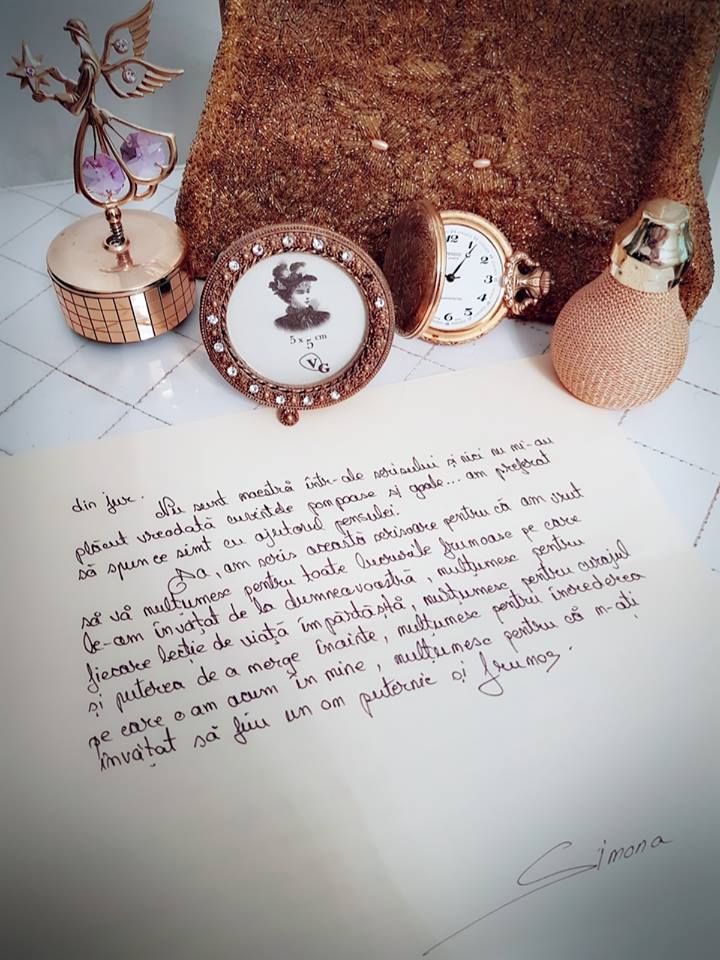 5 x 5 cm
VG
12
din jur. Nu sunt maestră într-ale scrisului și nici nu mi-au
plăcut vreodată cuvintele pompoase și goale... am preferat
să spun ce simt cu ajutorul pensulei.
Da, am scris această scrisoare pentru că am vrut
să vă mulțumesc pentru toate lucrurile frumoase pe care
le-am învățat de la dumneavoastră, mulțumesc pentru
fiecare lecție de viață împărtășită, mulțumesc pentru curajul
și puterea de a merge înainte, mulțumesc pentru încrederea
pe care o am acum în mine, mulțumesc pentru că m-ați
învățat să fiu un om puternic și frumos.
Simona